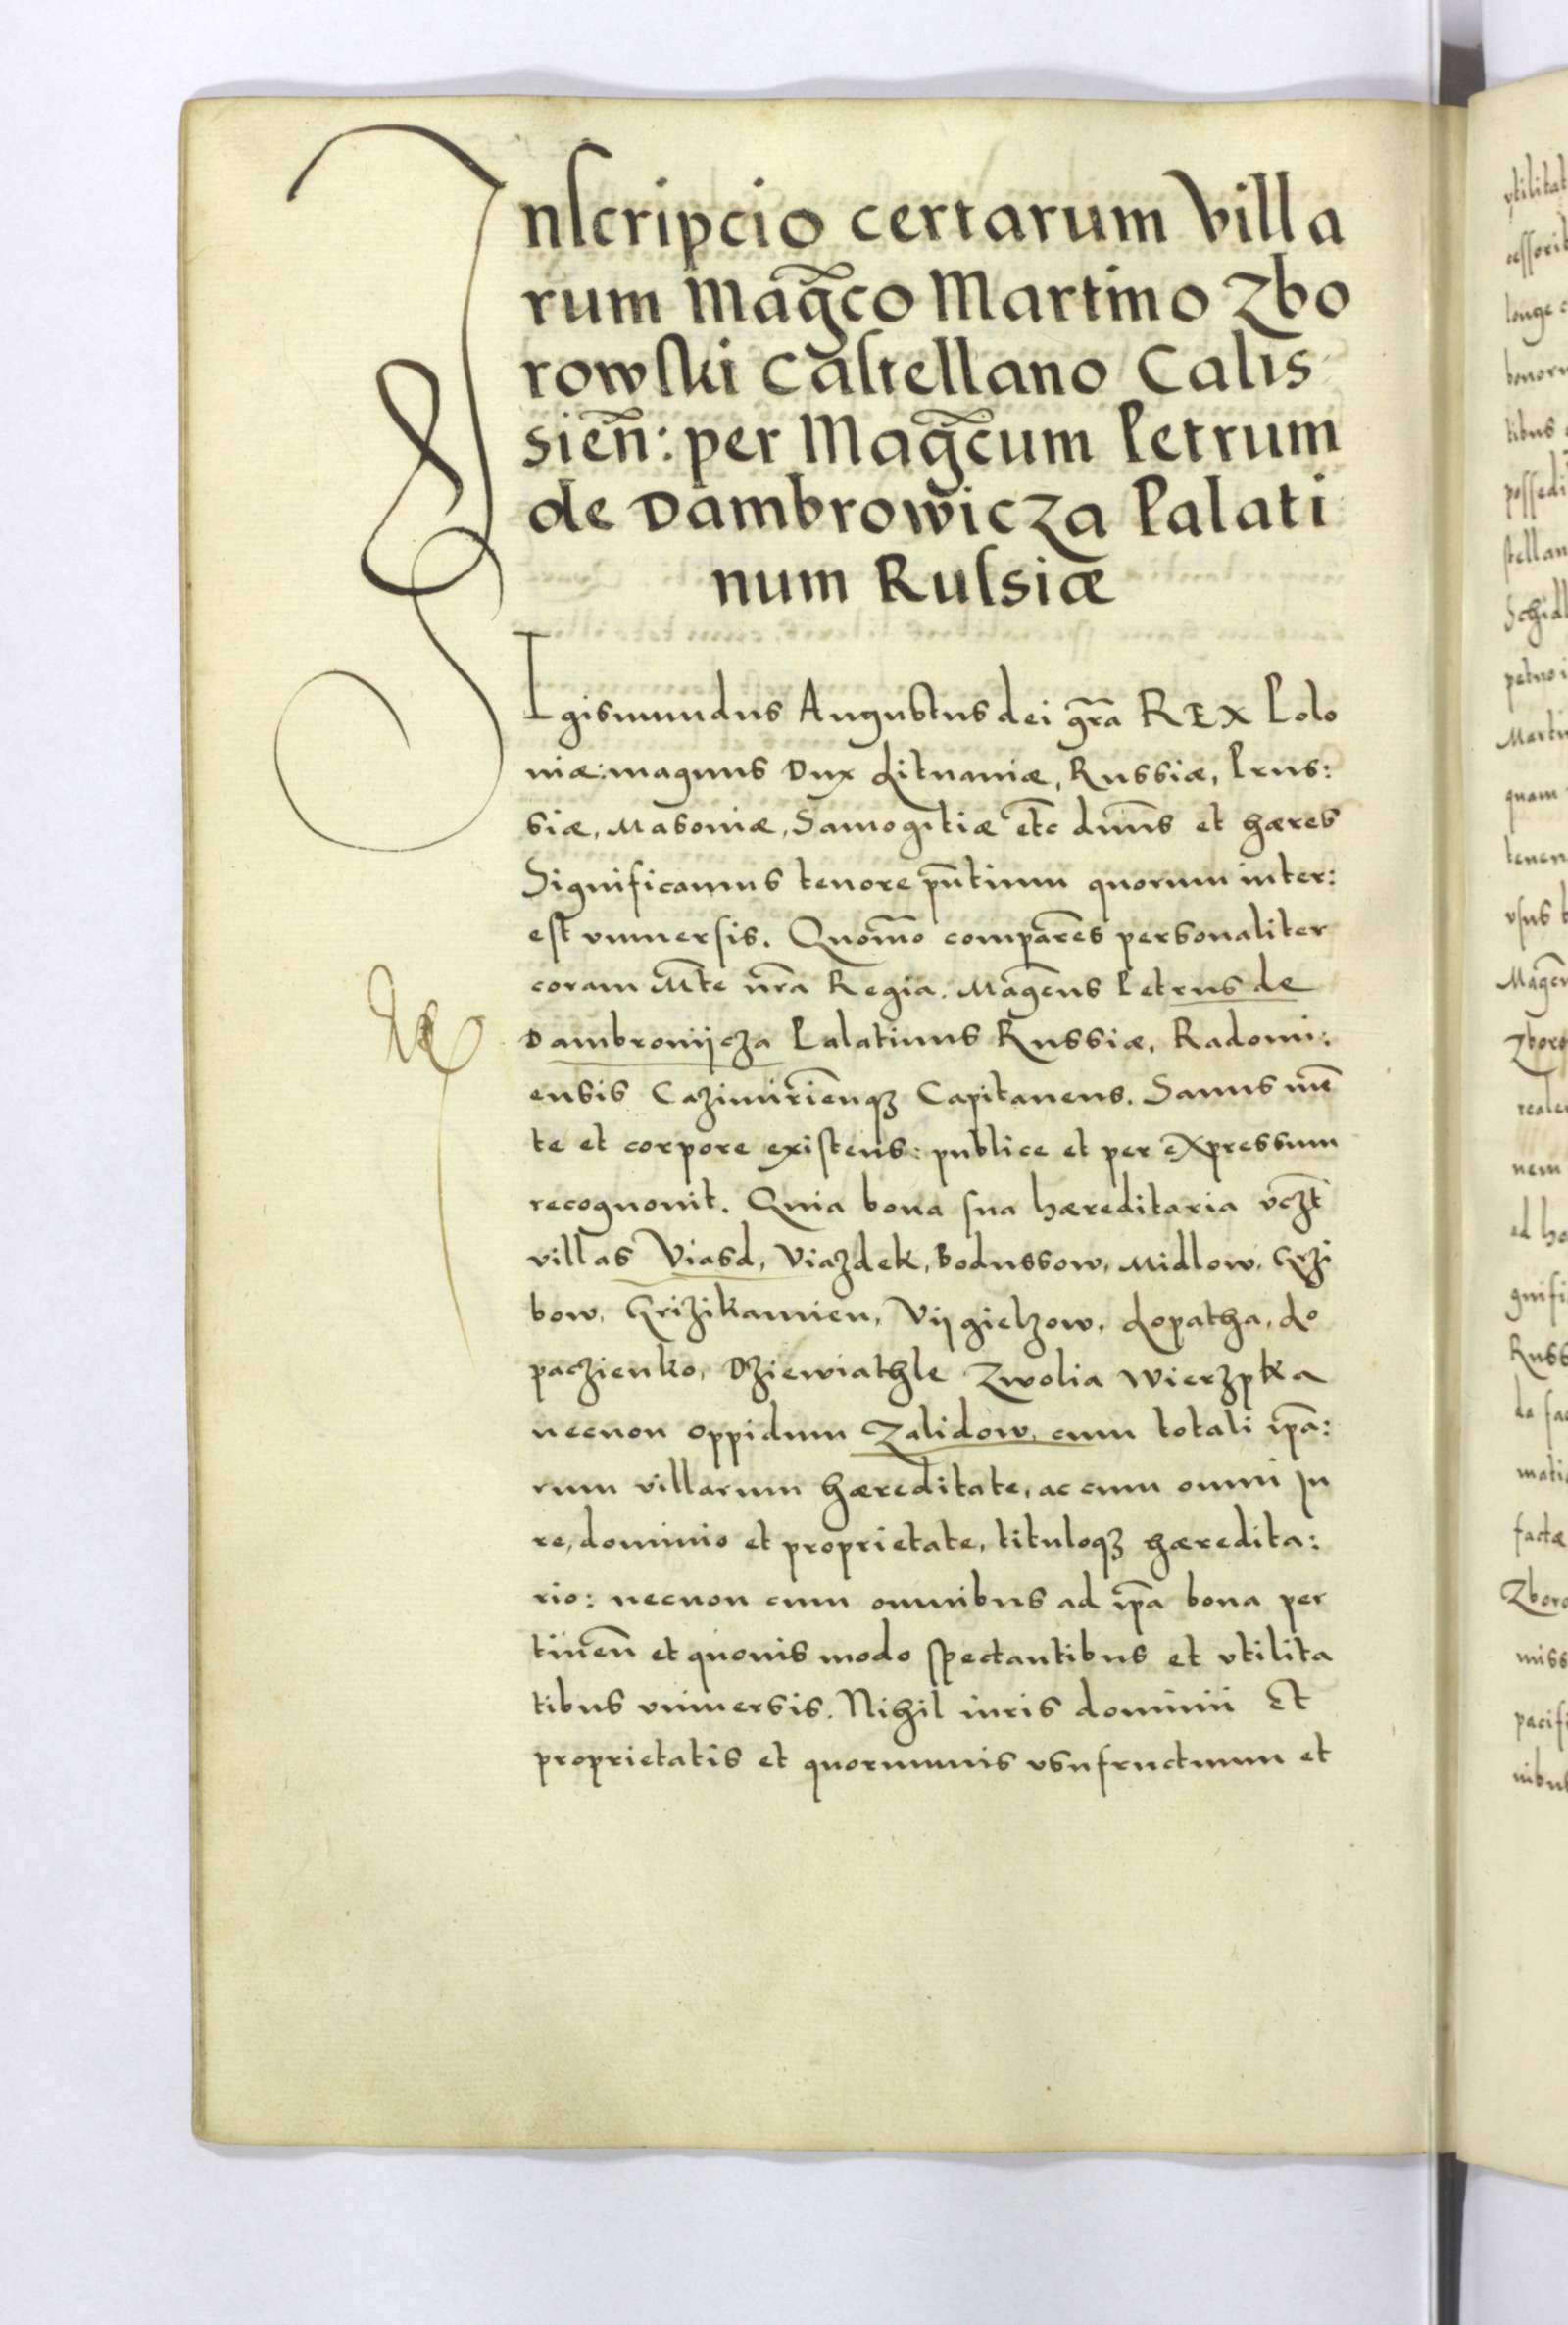 Inscripcio certarum villa
rum Mag̃co Martino Zbo
rowski Castellano Calis
sien̄: per Mag̃cum Petrum
de Dambrowicza Palati
num Russiæ
Igismundus Augustus dei gr̃a REX Polo
niæ: magnus Dux Lituaniæ, Russiæ, Prus:
siæ, Masoniæ, Samogitiæ et̃c dnũs et hæres
Significamus tenore pñtium quorum inter:
est vniuersis. Quom̃o comparẽs personaliter
coram Mt̃e nr̃a Regia. Mag̃cus Petrus de
Dambrouijcza Palatinus Russiæ, Radomi:
ensis Cazimiriẽnqꝫ Capitaneus. Sanus mẽ
te et corpore existens: publice et per eXpressum
recognouit. Quia bona sua hæreditaria vcꝫt̃
villas Viasd, Viazdek, Bodussow, Midlow, Grzi
bow, Krizikamien, Vijgielzow, Lopatha, Lo
paczienko, Dziewiathle Zwolia Wierzpka
necnon oppidum Zalidow, cum totali ip̃a:
rum villarum hæreditate, ac cum omni Iu
re, dominio et proprietate, tituloqꝫ hæredita:
rio: necnon cum omnibus ad ip̃a bona per
tineñ et quouis modo spectantibus et vtilita
tibus vniuersis. Nihil iuris dominii Et
proprietatis et quorumuis vsufructuum et
ytilitat
cessorib
longe
bonoru
tibus
possedi
stellan
Schidl
petuo i
Martin
quam
tenen
vsus b
Mag̃cu
Zboro
reale
nem
ad ho
gnifi
Russ
da fac
matio
factæ
Zboro
miss
pacifi
nibus